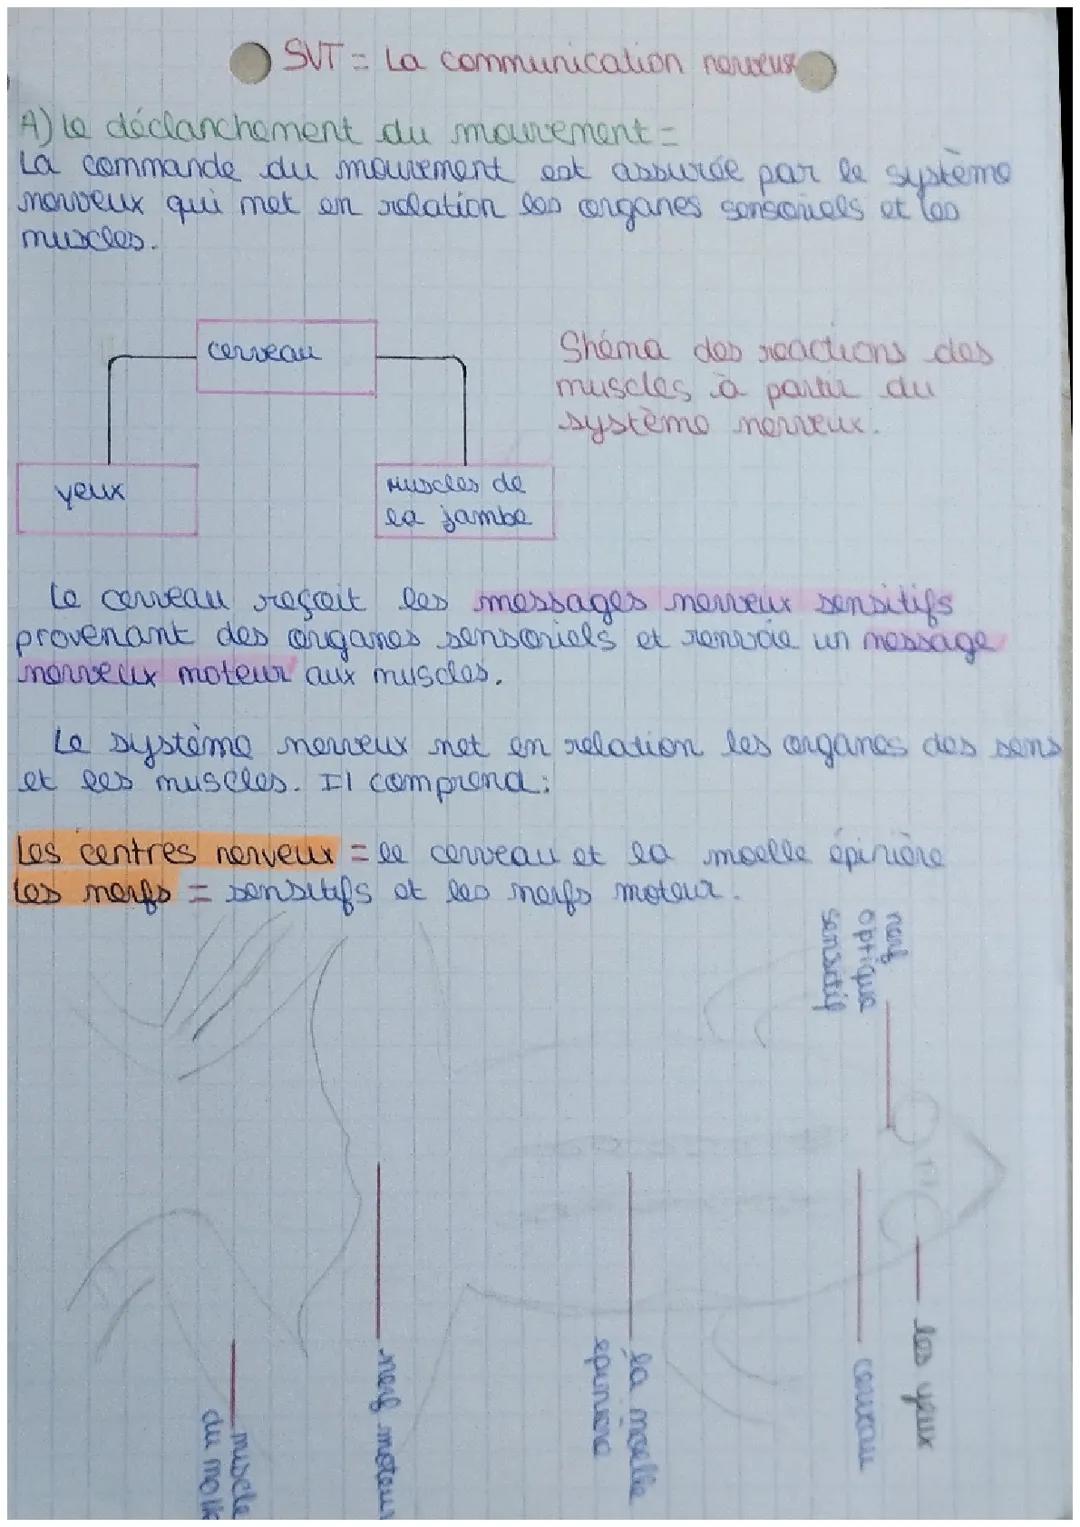 SVT = La communication nerveux
A) le déclanchement du mouvement =
La commande du mouvement est assurée par le système
nerveux qui met en relation les organes sensoriels et les
muscles.
cerveau
Shéma des reactions des
muscles à partir du
système nerveux.
yeux
Muscles de
la jambe
Le cerveau reçoit les messages nerveux sensitifs
provenant des organes sensoriels et renvoie un message
nerveux moteur aux muscles.
Le système nerveux met en relation les organes des sens
et les muscles. Il comprend :
Les centres nerveux = le cerveau et la moelle épinière
Les nerfs = sensitifs et les nerfs moteur.
nerf
optique
sensitif
les yeux
cerveau
la moelle
epiniere
nerf moteur
muscle
du molle